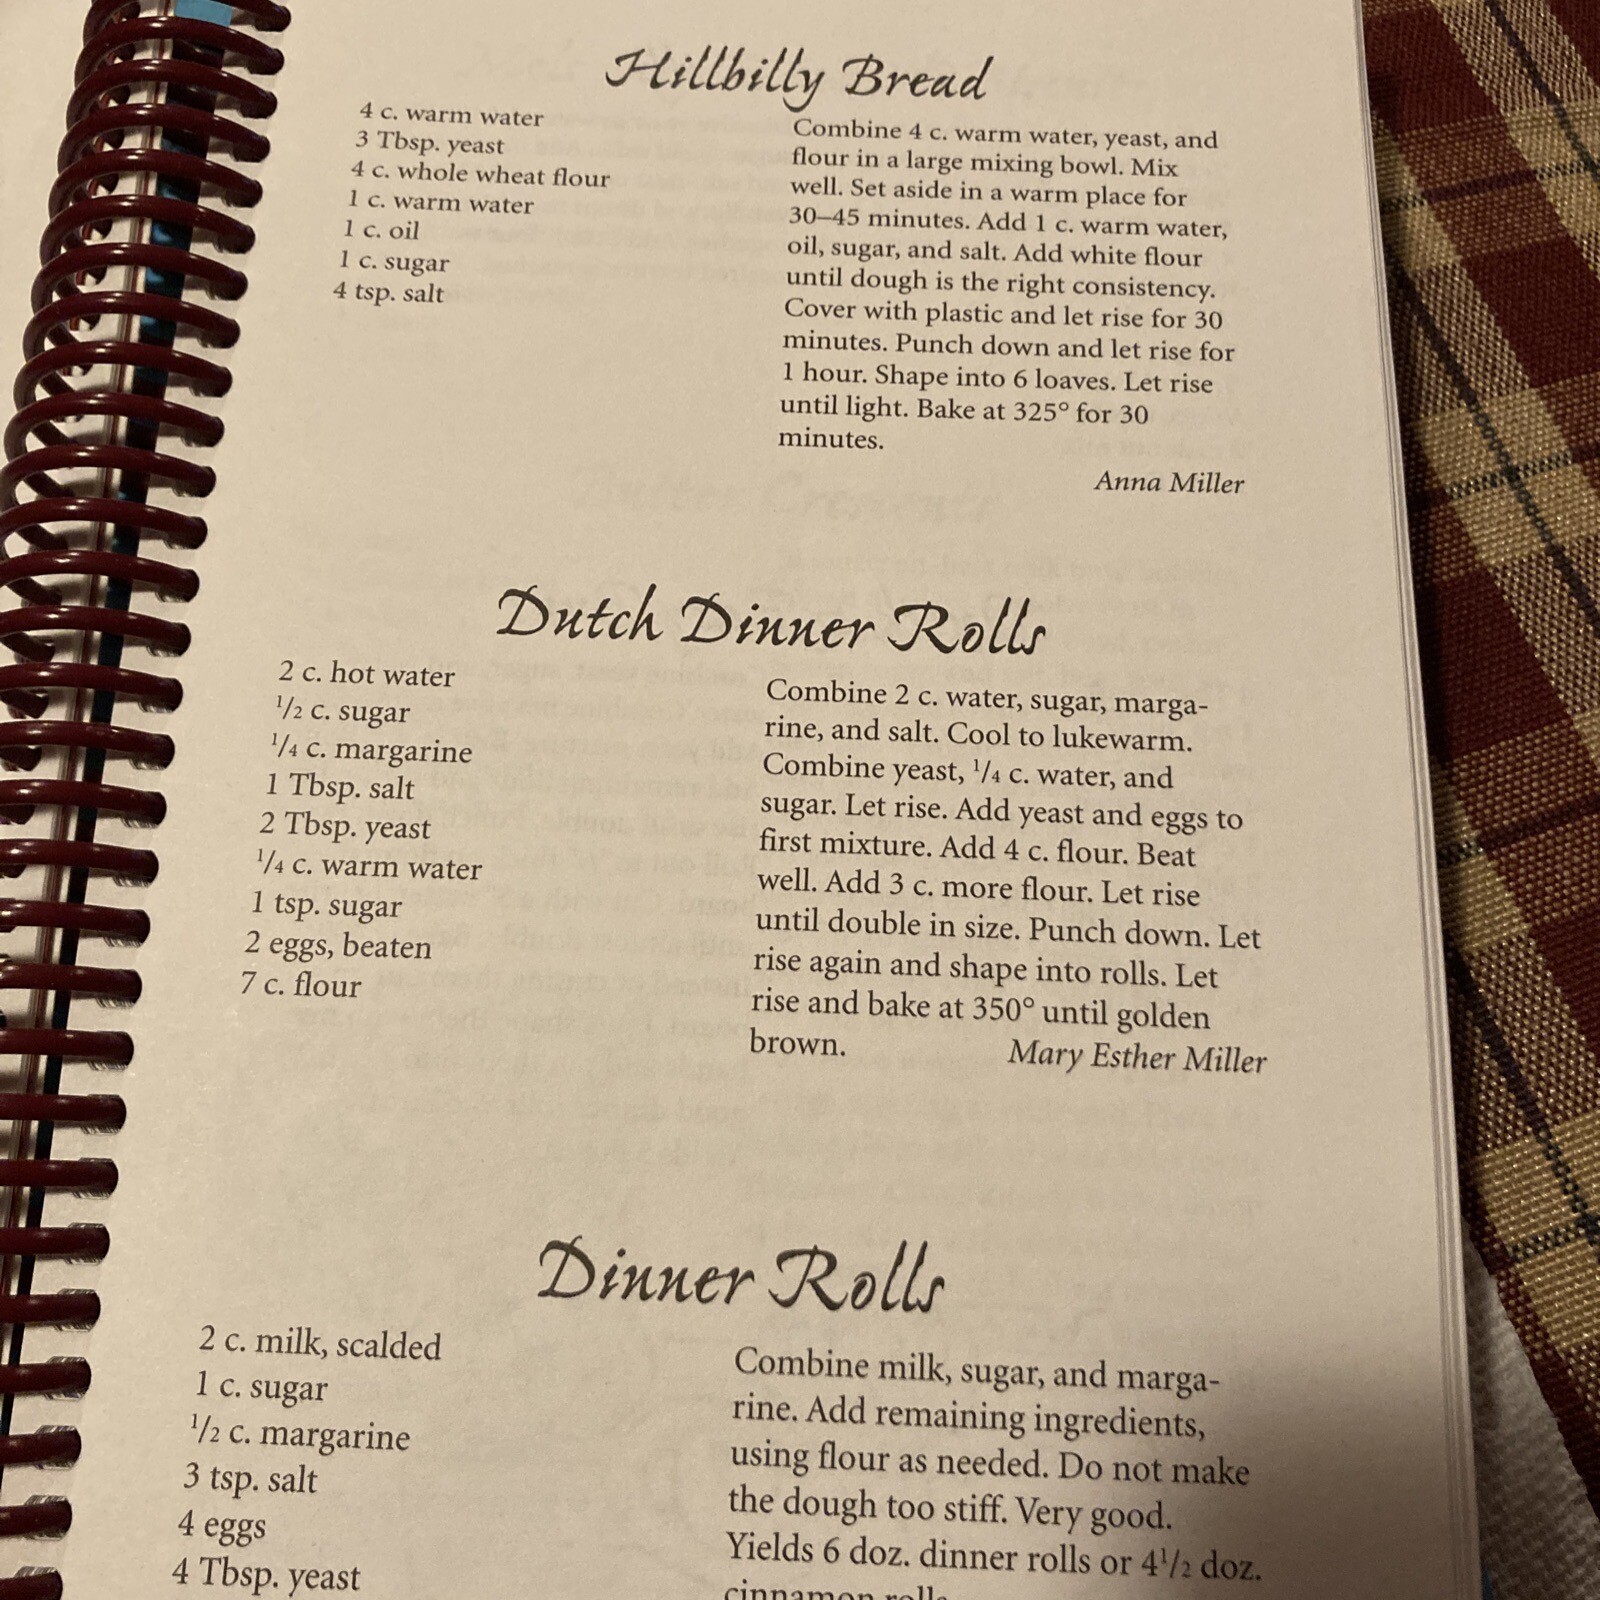 Hillbilly Bread
4 c. warm water
3 Tbsp. yeast
4 c. whole wheat flour
1 c. warm water
1 c. oil
1 c. sugar
4 tsp. salt
Combine 4 c. warm water, yeast, and
flour in a large mixing bowl. Mix
well. Set aside in a warm place for
30–45 minutes. Add 1 c. warm water,
oil, sugar, and salt. Add white flour
until dough is the right consistency.
Cover with plastic and let rise for 30
minutes. Punch down and let rise for
1 hour. Shape into 6 loaves. Let rise
until light. Bake at 325° for 30
minutes.
Anna Miller
Dutch Dinner Rolls
2 c. hot water
1/2 c. sugar
1/4 c. margarine
1 Tbsp. salt
2 Tbsp. yeast
1/4 c. warm water
1 tsp. sugar
2 eggs, beaten
7 c. flour
Combine 2 c. water, sugar, marga-
rine, and salt. Cool to lukewarm.
Combine yeast, 1/4 c. water, and
sugar. Let rise. Add yeast and eggs to
first mixture. Add 4 c. flour. Beat
well. Add 3 c. more flour. Let rise
until double in size. Punch down. Let
rise again and shape into rolls. Let
rise and bake at 350° until golden
brown. Mary Esther Miller
Dinner Rolls
2 c. milk, scalded
1 c. sugar
1/2 c. margarine
3 tsp. salt
4 eggs
4 Tbsp. yeast
Combine milk, sugar, and marga-
rine. Add remaining ingredients,
using flour as needed. Do not make
the dough too stiff. Very good.
Yields 6 doz. dinner rolls or 4 1/2 doz.
cinnamon rolls